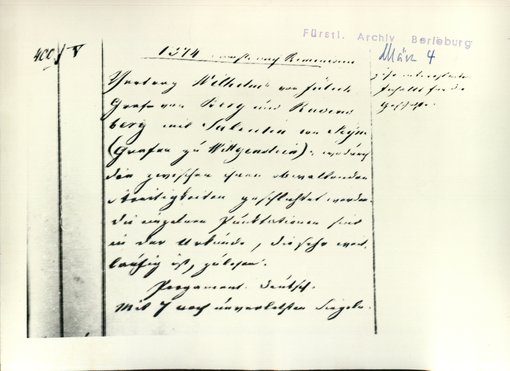 Fürstl. Archiv Berleburg
März 4
400/V
1374
Vertrag Wilhelms von Jülich
Grafen von Berg und Ravens
berg mit Salentin von Sayn
(Grafen zu Wittgenstein), wodurch
die zwischen ihnen obwaltenden
Streitigkeiten geschlichtet werden
die einzelnen Punktationen sind
in der Urkunde, die sehr weit
läufig ist, zu lesen.
Pergament. deutsch.
Mit 7 noch unverletzten Siegeln.